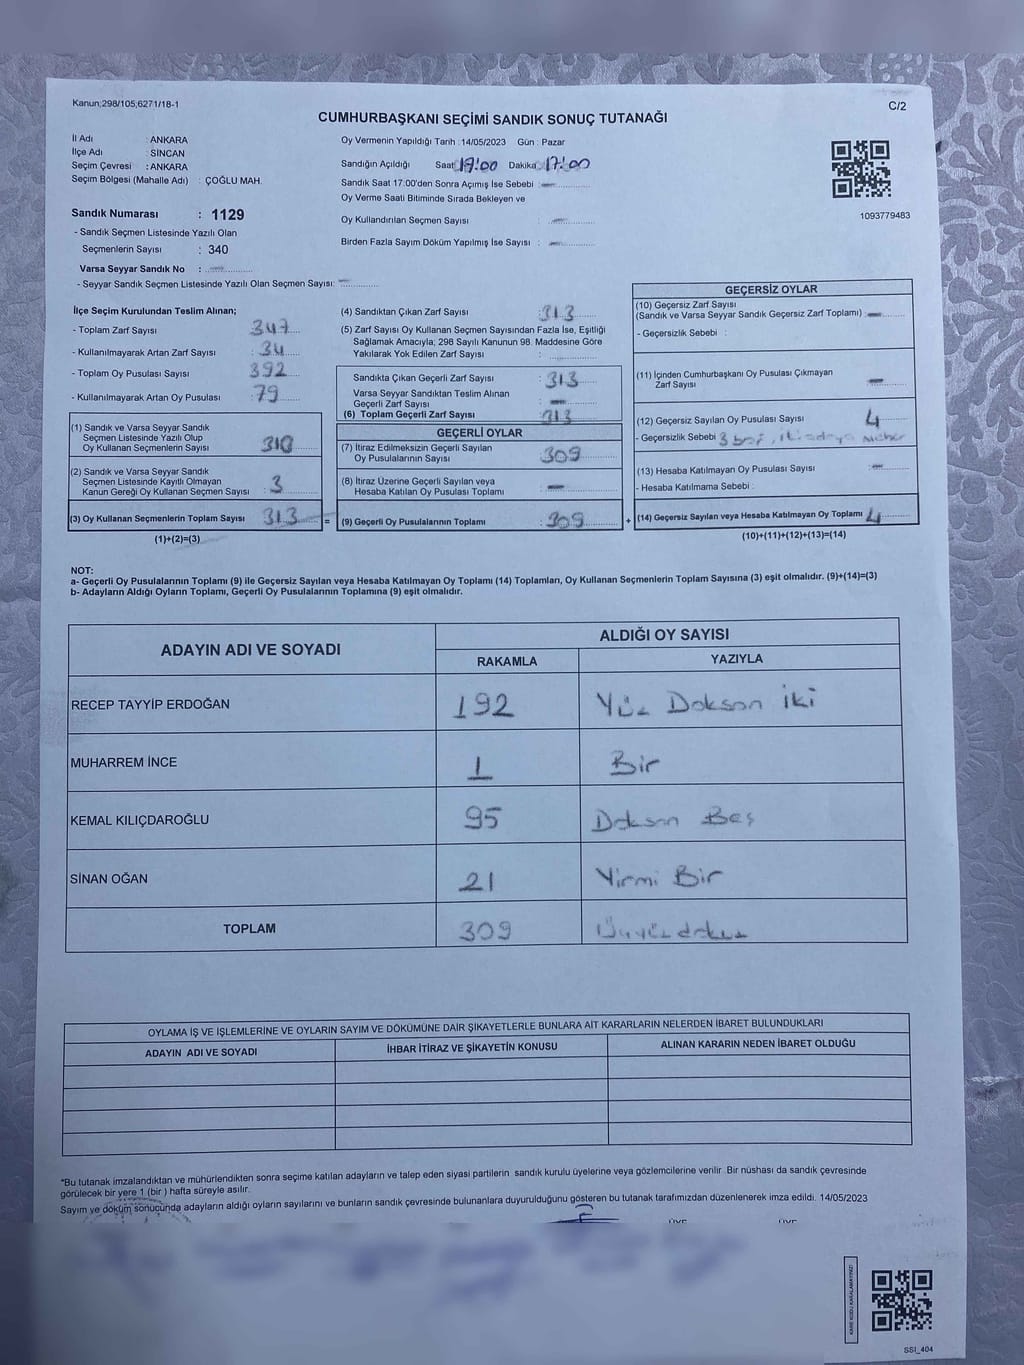 Kanun;298/105;6271/18-1
C/2
CUMHURBAŞKANI SEÇİMİ SANDIK SONUÇ TUTANAĞI
İl Adı : ANKARA
İlçe Adı : SİNCAN
Seçim Çevresi : ANKARA
Seçim Bölgesi (Mahalle Adı) : ÇOĞLU MAH.
Sandık Numarası : 1129
- Sandık Seçmen Listesinde Yazılı Olan
Seçmenlerin Sayısı : 340
Varsa Seyyar Sandık No : —
- Seyyar Sandık Seçmen Listesinde Yazılı Olan Seçmen Sayısı: —
Oy Vermenin Yapıldığı Tarih :14/05/2023 Gün : Pazar
Sandığın Açıldığı Saat: 17:00 Dakika: 17:00
Sandık Saat 17:00'den Sonra Açımış İse Sebebi : —
Oy Verme Saati Bitiminde Sırada Bekleyen ve
Oy Kullandırılan Seçmen Sayısı : —
Birden Fazla Sayım Döküm Yapılmış İse Sayısı : —
1093779483
İlçe Seçim Kurulundan Teslim Alınan;
- Toplam Zarf Sayısı : 347
- Kullanılmayarak Artan Zarf Sayısı : 34
- Toplam Oy Pusulası Sayısı : 392
- Kullanılmayarak Artan Oy Pusulası : 79
(1) Sandık ve Varsa Seyyar Sandık
Seçmen Listesinde Yazılı Olup
Oy Kullanan Seçmenlerin Sayısı : 310
(2) Sandık ve Varsa Seyyar Sandık
Seçmen Listesinde Kayıtlı Olmayan
Kanun Gereği Oy Kullanan Seçmen Sayısı : 3
(3) Oy Kullanan Seçmenlerin Toplam Sayısı 313 =
(1)+(2)=(3)
(4) Sandıktan Çıkan Zarf Sayısı : 313
(5) Zarf Sayısı Oy Kullanan Seçmen Sayısından Fazla İse, Eşitliği
Sağlamak Amacıyla; 298 Sayılı Kanunun 98. Maddesine Göre
Yakılarak Yok Edilen Zarf Sayısı :
Sandıkta Çıkan Geçerli Zarf Sayısı : 313
Varsa Seyyar Sandıktan Teslim Alınan
Geçerli Zarf Sayısı : —
(6) Toplam Geçerli Zarf Sayısı : 313
GEÇERLİ OYLAR
(7) İtiraz Edilmeksizin Geçerli Sayılan
Oy Pusulalarının Sayısı : 309
(8) İtiraz Üzerine Geçerli Sayılan veya
Hesaba Katılan Oy Pusulası Toplamı : —
(9) Geçerli Oy Pusulalarının Toplamı : 309 +
GEÇERSİZ OYLAR
(10) Geçersiz Zarf Sayısı
(Sandık ve Varsa Seyyar Sandık Geçersiz Zarf Toplamı) : —
- Geçersizlik Sebebi :
(11) İçinden Cumhurbaşkanı Oy Pusulası Çıkmayan
Zarf Sayısı : —
(12) Geçersiz Sayılan Oy Pusulası Sayısı : 4
- Geçersizlik Sebebi : 3 boş, iki adaya
(13) Hesaba Katılmayan Oy Pusulası Sayısı : —
- Hesaba Katılmama Sebebi :
(14) Geçersiz Sayılan veya Hesaba Katılmayan Oy Toplamı : 4
(10)+(11)+(12)+(13)=(14)
NOT:
a- Geçerli Oy Pusulalarının Toplamı (9) ile Geçersiz Sayılan veya Hesaba Katılmayan Oy Toplamı (14) Toplamları, Oy Kullanan Seçmenlerin Toplam Sayısına (3) eşit olmalıdır. (9)+(14)=(3)
b- Adayların Aldığı Oyların Toplamı, Geçerli Oy Pusulalarının Toplamına (9) eşit olmalıdır.
ADAYIN ADI VE SOYADI
ALDIĞI OY SAYISI
RAKAMLA YAZIYLA
RECEP TAYYİP ERDOĞAN 192 Yüz Doksan İki
MUHARREM İNCE 1 Bir
KEMAL KILIÇDAROĞLU 95 Doksan Beş
SİNAN OĞAN 21 Yirmi Bir
TOPLAM 309 Üçyüzdokuz
OYLAMA İŞ VE İŞLEMLERİNE VE OYLARIN SAYIM VE DÖKÜMÜNE DAİR ŞİKAYETLERLE BUNLARA AİT KARARLARIN NELERDEN İBARET BULUNDUKLARI
ADAYIN ADI VE SOYADI İHBAR İTİRAZ VE ŞİKAYETİN KONUSU ALINAN KARARIN NEDEN İBARET OLDUĞU
*Bu tutanak imzalandıktan ve mühürlendikten sonra seçime katılan adayların ve talep eden siyasi partilerin sandık kurulu üyelerine veya gözlemcilerine verilir. Bir nüshası da sandık çevresinde
görülecek bir yere 1 (bir ) hafta süreyle asılır.
Sayım ve döküm sonucunda adayların aldığı oyların sayılarını ve bunların sandık çevresinde bulunanlara duyurulduğunu gösteren bu tutanak tarafımızdan düzenlenerek imza edildi. 14/05/2023
KARE KODU KARALAMAYINIZ!
SSİ_404